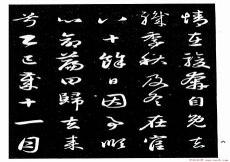 情在駿奔自免去
職季秋及冬在官
八十餘日因事順
心命篇曰歸去来
兮乙巳歲十一月